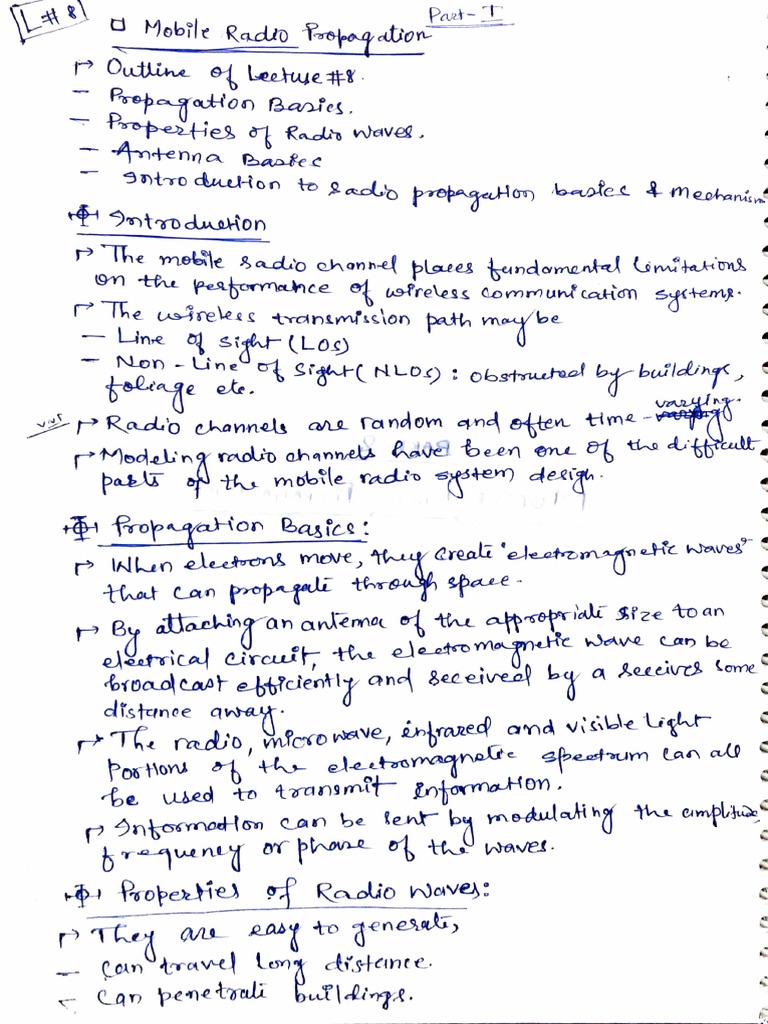 L#8
Part-I
Mobile Radio Propagation
Outline of Lecture #8.
- Propagation Basics.
- Properties of Radio Waves.
- Antenna Basics
- Introduction to radio propagation basics & Mechanism
Introduction
The mobile radio channel places fundamental limitations
on the performance of wireless communication systems.
The wireless transmission path may be
- Line of Sight (LOS)
- Non-Line of Sight (NLOS): obstructed by buildings,
foliage etc.
varying.
Radio channels are random and often time-
Modeling radio channels have been one of the difficult
parts of the mobile radio system design.
Propagation Basics:
When electrons move, they create "electromagnetic waves"
that can propagate through space.
By attaching an antenna of the appropriate size to an
electrical circuit, the electromagnetic wave can be
broadcast efficiently and received by a receiver some
distance away.
The radio, microwave, infrared and visible light
portions of the electromagnetic spectrum can all
be used to transmit information.
Information can be sent by modulating the amplitude,
frequency or phase of the waves.
Properties of Radio Waves:
They are easy to generate,
- Can travel long distance.
- Can penetrate buildings.